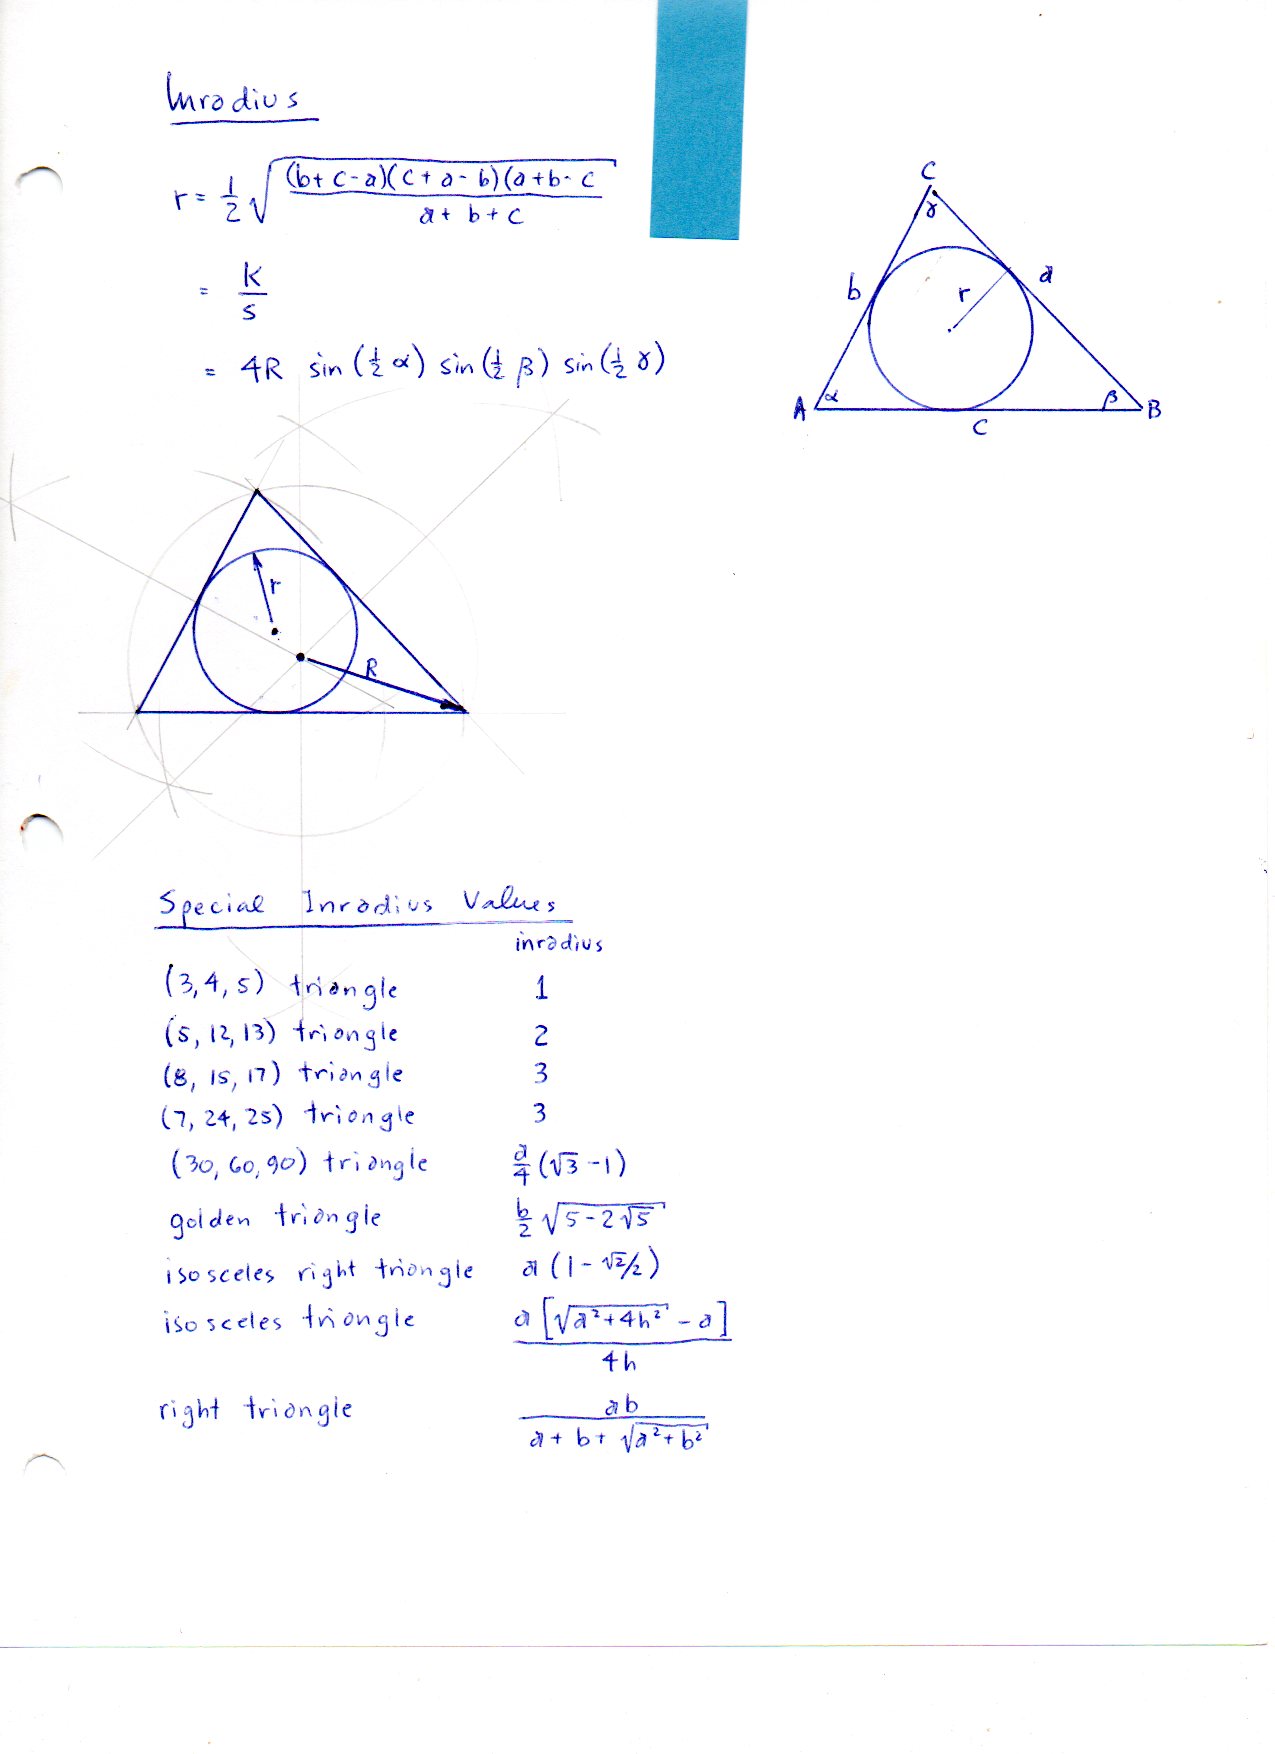 Inradius
r = 1/2 √((b+c-a)(c+a-b)(a+b-c / a+b+c
= K/s
= 4R sin(1/2 α) sin(1/2 β) sin(1/2 γ)
C
γ
b
a
r
A
α
β
B
c
r
R
Special Inradius Values
inradius
(3,4,5) triangle 1
(5,12,13) triangle 2
(8,15,17) triangle 3
(7,24,25) triangle 3
(30,60,90) triangle a/4 (√3 -1)
golden triangle b/2 √(5-2√5)
isosceles right triangle a(1-√2/2)
isosceles triangle a[√(a²+4h²) - a] / 4h
right triangle ab / a+b+√(a²+b²)